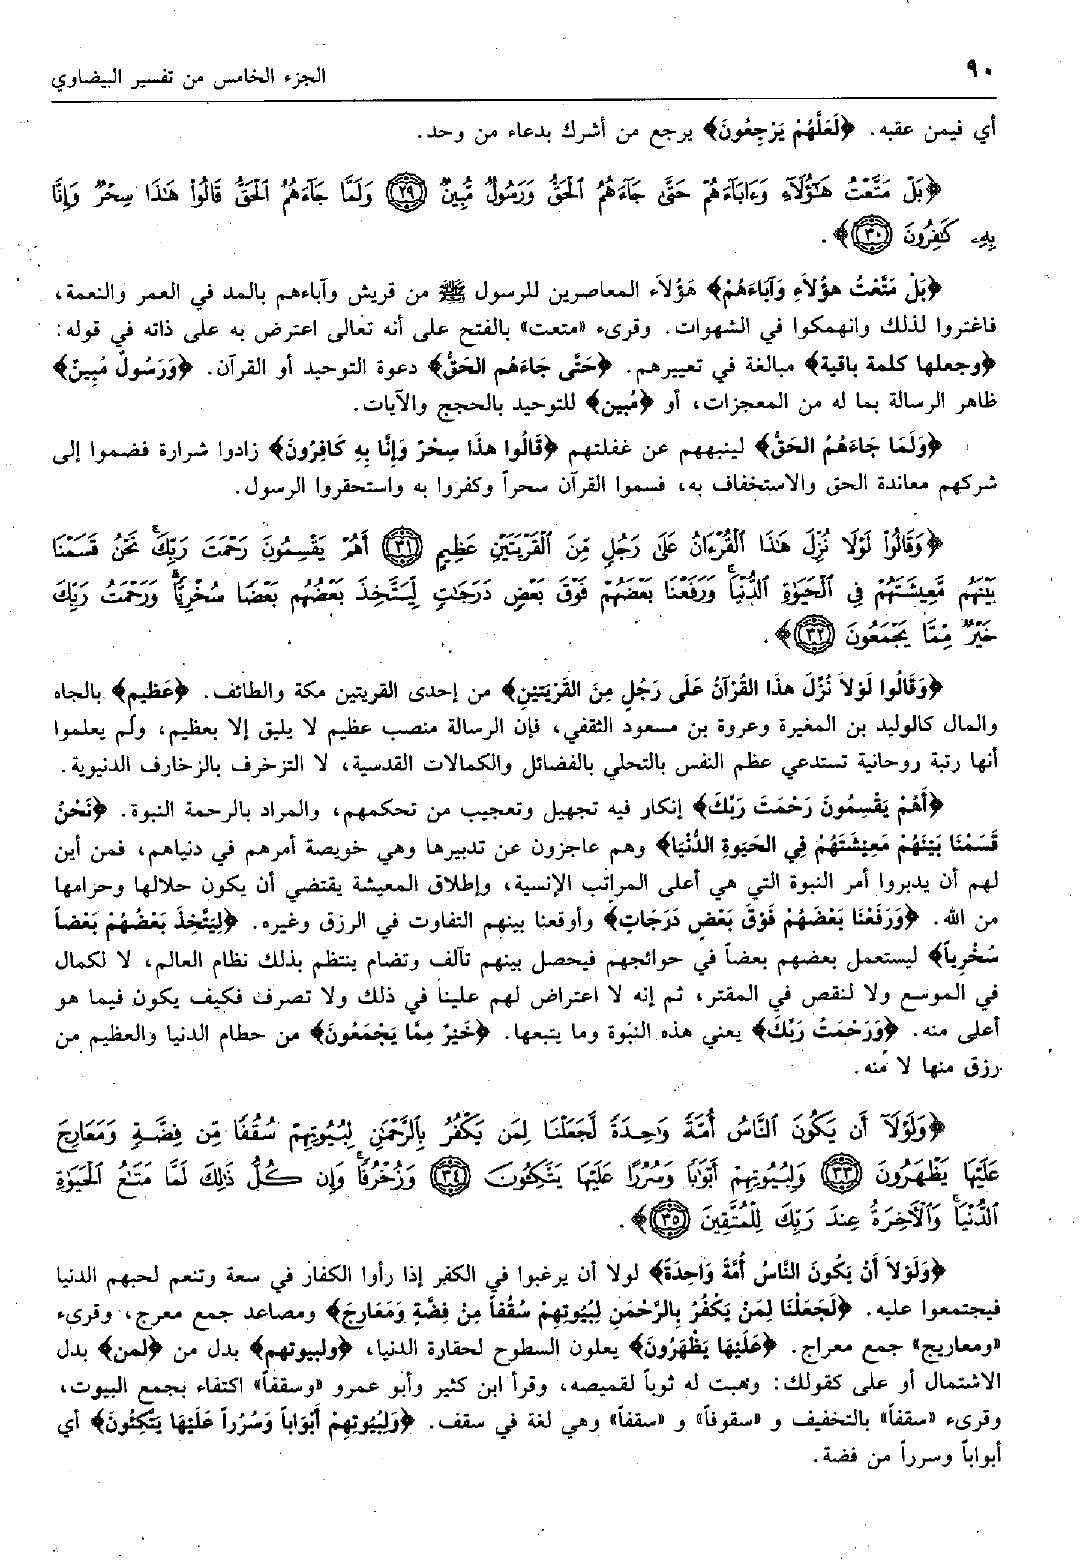 ٩٠
الجزء الخامس من تفسير البيضاوي
أي فيمن عقبه. ﴿لَعَلَّهُمْ يَرْجِعُونَ﴾ يرجع من أشرك بدعاء من وحد.
﴿بَلْ مَتَّعْتُ هَٰٓؤُلَآءِ وَءَابَآءَهُمْ حَتَّىٰ جَآءَهُمُ ٱلْحَقُّ وَرَسُولٌ مُّبِينٌ ﴿٢٩﴾ وَلَمَّا جَآءَهُمُ ٱلْحَقُّ قَالُوا۟ هَٰذَا سِحْرٌ وَإِنَّا
بِهِۦ كَٰفِرُونَ ﴿٣٠﴾﴾.
﴿بَلْ مَتَّعْتُ هؤُلاَءِ وَآبَاءَهُمْ﴾ هَؤُلاَء المعاصرين للرسول ﷺ من قريش وآباءهم بالمد في العمر والنعمة،
فاغتروا لذلك وانهمكوا في الشهوات. وقرىء «متعت» بالفتح على أنه تعالى اعترض به على ذاته في قوله:
﴿وجعلها كلمة باقية﴾ مبالغة في تعييرهم. ﴿حَتَّى جَاءَهُم الحَقُّ﴾ دعوة التوحيد أو القرآن. ﴿وَرَسُولٌ مُبِينٌ﴾
ظاهر الرسالة بما له من المعجزات، أو ﴿مُبين﴾ للتوحيد بالحجج والآيات.
﴿وَلَمَا جَاءَهُمُ الحَقُّ﴾ لينبههم عن غفلتهم ﴿قَالُوا هذَا سِحْرٌ وَإِنَّا بِهِ كَافِرُونَ﴾ زادوا شرارة فضموا إلى
شركهم معاندة الحق والاستخفاف به، فسموا القرآن سحراً وكفروا به واستحقروا الرسول.
﴿وَقَالُوا۟ لَوْلَا نُزِّلَ هَٰذَا ٱلْقُرْءَانُ عَلَىٰ رَجُلٍ مِّنَ ٱلْقَرْيَتَيْنِ عَظِيمٍ ﴿٣١﴾ أَهُمْ يَقْسِمُونَ رَحْمَتَ رَبِّكَ ۚ نَحْنُ قَسَمْنَا
بَيْنَهُم مَّعِيشَتَهُمْ فِى ٱلْحَيَوٰةِ ٱلدُّنْيَا ۚ وَرَفَعْنَا بَعْضَهُمْ فَوْقَ بَعْضٍ دَرَجَٰتٍ لِّيَتَّخِذَ بَعْضُهُم بَعْضًا سُخْرِيًّا ۗ وَرَحْمَتُ رَبِّكَ
خَيْرٌ مِّمَّا يَجْمَعُونَ ﴿٣٢﴾﴾.
﴿وَقَالُوا لَوْلاَ نُزِّلَ هذَا القُرْآنُ عَلَى رَجُلٍ مِنَ القَرْيَتَيْنِ﴾ من إحدى القريتين مكة والطائف. ﴿عَظِيم﴾ بالجاه
والمال كالوليد بن المغيرة وعروة بن مسعود الثقفي، فإن الرسالة منصب عظيم لا يليق إلا بعظيم، ولم يعلموا
أنها رتبة روحانية تستدعي عظم النفس بالتحلي بالفضائل والكمالات القدسية، لا التزخرف بالزخارف الدنيوية.
﴿أَهُمْ يَقْسِمُونَ رَحْمَتَ رَبِّكَ﴾ إنكار فيه تجهيل وتعجيب من تحكمهم، والمراد بالرحمة النبوة. ﴿نَحْنُ
قَسَمْنَا بَيْنَهُمْ مَعِيشَتَهُمْ فِي الحَيَوةِ الدُّنْيَا﴾ وهم عاجزون عن تدبيرها وهي خويصة أمرهم في دنياهم، فمن أين
لهم أن يدبروا أمر النبوة التي هي أعلى المراتب الإنسية، وإطلاق المعيشة يقتضي أن يكون حلالها وحرامها
من الله. ﴿وَرَفَعْنَا بَعْضَهُمْ فَوْقَ بَعْضٍ دَرَجَاتٍ﴾ وأوقعنا بينهم التفاوت في الرزق وغيره. ﴿لِيَتَّخِذَ بَعْضُهُمْ بَعْضاً
سُخْرِياً﴾ ليستعمل بعضهم بعضاً في حوائجهم فيحصل بينهم تآلف وتضام ينتظم بذلك نظام العالم، لا لكمال
في الموسع ولا لنقص في المقتر، ثم إنه لا اعتراض لهم علينا في ذلك ولا تصرف فكيف يكون فيما هو
أعلى منه. ﴿وَرَحْمَتُ رَبِّكَ﴾ يعني هذه النبوة وما يتبعها. ﴿خَيْرٌ مِمَّا يَجْمَعُونَ﴾ من حطام الدنيا والعظيم من
رزق منها لا منه.
﴿وَلَوْلَآ أَن يَكُونَ ٱلنَّاسُ أُمَّةً وَٰحِدَةً لَّجَعَلْنَا لِمَن يَكْفُرُ بِٱلرَّحْمَٰنِ لِبُيُوتِهِمْ سُقُفًا مِّن فِضَّةٍ وَمَعَارِجَ
عَلَيْهَا يَظْهَرُونَ ﴿٣٣﴾ وَلِبُيُوتِهِمْ أَبْوَٰبًا وَسُرُرًا عَلَيْهَا يَتَّكِـُٔونَ ﴿٣٤﴾ وَزُخْرُفًا ۚ وَإِن كُلُّ ذَٰلِكَ لَمَّا مَتَٰعُ ٱلْحَيَوٰةِ
ٱلدُّنْيَا ۚ وَٱلْءَاخِرَةُ عِندَ رَبِّكَ لِلْمُتَّقِينَ ﴿٣٥﴾﴾.
﴿وَلَوْلاَ أَنْ يَكُونَ النَّاسُ أُمَّةً وَاحِدَةً﴾ لولا أن يرغبوا في الكفر إذا رأوا الكفار في سعة وتنعم لحبهم الدنيا
فيجتمعوا عليه. ﴿لَجَعَلْنَا لِمَنْ يَكْفُرُ بِالرَّحْمَنِ لِبُيُوتِهِمْ سُقُفاً مِنْ فِضَّةٍ وَمَعَارِجَ﴾ ومصاعد جمع معرج، وقرىء
«ومعاريج» جمع معراج. ﴿عَلَيْهَا يَظْهَرُونَ﴾ يعلون السطوح لحقارة الدنيا، ﴿ولبيوتهم﴾ بدل من ﴿لمن﴾ بدل
الاشتمال أو على كقولك: وهبت له ثوباً لقميصه، وقرأ ابن كثير وأبو عمرو «وسقفاً» اكتفاء بجمع البيوت،
وقرىء «سقفاً» بالتخفيف و «سقوفاً» و «سقفاً» وهي لغة في سقف. ﴿وَلِبُيُوتِهِمْ أَبْوَاباً وَسُرُراً عَلَيْهَا يَتَّكِئُونَ﴾ أي
أبواباً وسرراً من فضة.